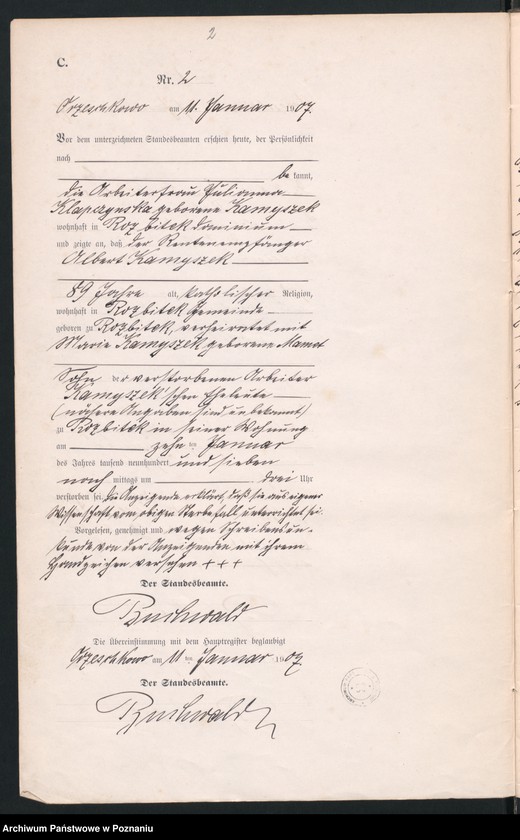 2
C.
Nr. 2
Orzeschkowo am 11. Januar 1907.
Vor dem unterzeichneten Standesbeamten erschien heute, der Persönlichkeit
nach
bekannt,
die Arbeiterfrau Julianna
Klapczynska geborene Kamyszek
wohnhaft in Rozbitek Dominium
und zeigte an, daß der Rentenempfänger
Albert Kamyszek
89 Jahre alt, katholischer Religion,
wohnhaft in Rozbitek Gemeinde
geboren zu Rozbitek, verheirathet mit
Marie Kamyszek geborene Mamet
Sohn der verstorbenen Arbeiter
Kamyszek'schen Eheleute
(nähere Angaben sind unbekannt)
zu Rozbitek in seiner Wohnung
am zehnten Januar
des Jahres tausend neunhundert und sieben
nachmittags um drei Uhr
verstorben sei. Die Anzeigende erklärt, daß sie aus eigener
Wissenschaft vom obigen Sterbefall unterrichtet sei.
Vorgelesen, genehmigt und wegen Schreibensun-
kunde von der Anzeigenden mit ihrem
Handzeichen versehen + + +
Der Standesbeamte.
Buchwald
Die Übereinstimmung mit dem Hauptregister beglaubigt
Orzeschkowo am 11ten Januar 1907
Der Standesbeamte.
Buchwald
Archiwum Państwowe w Poznaniu